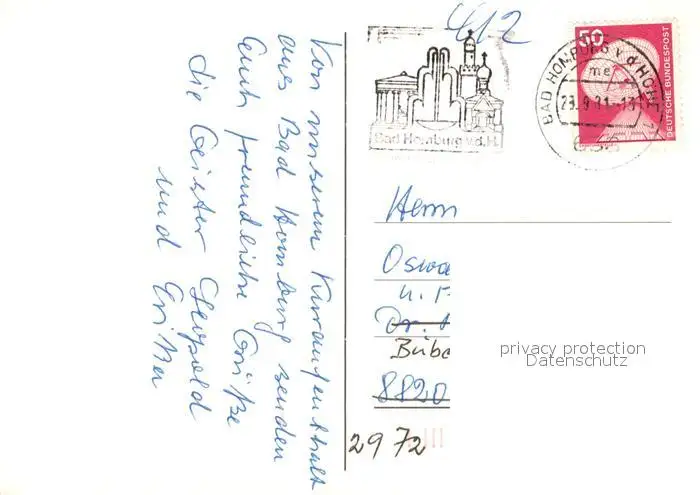 Von unserem Kuraufenthalt
aus Bad Homburg senden
Euch freundliche Grüße
die Geister Leopold
und
412
Bad Homburg v.d.H.
BAD HOMBURG v. d. HÖHE 1
me
23.-9.81.-18
50
DEUTSCHE BUNDESPOST
Herrn
Oswa
u. F
Dr.
Bübe
8820
2972
privacy protection
Datenschutz